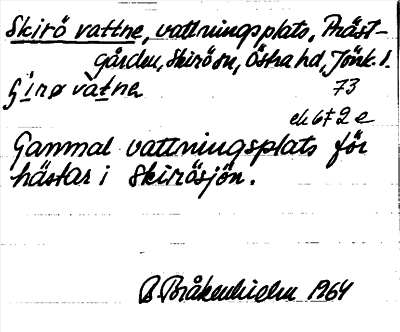 Skirö vattne, vattningsplats, Präst-
gården, Skirö sn, Östra hd, Jönk. l.
73
ek 67 2 e
Gammal vattningsplats för
hästar i Skirösjön.
B. Bråkenhielm 1964